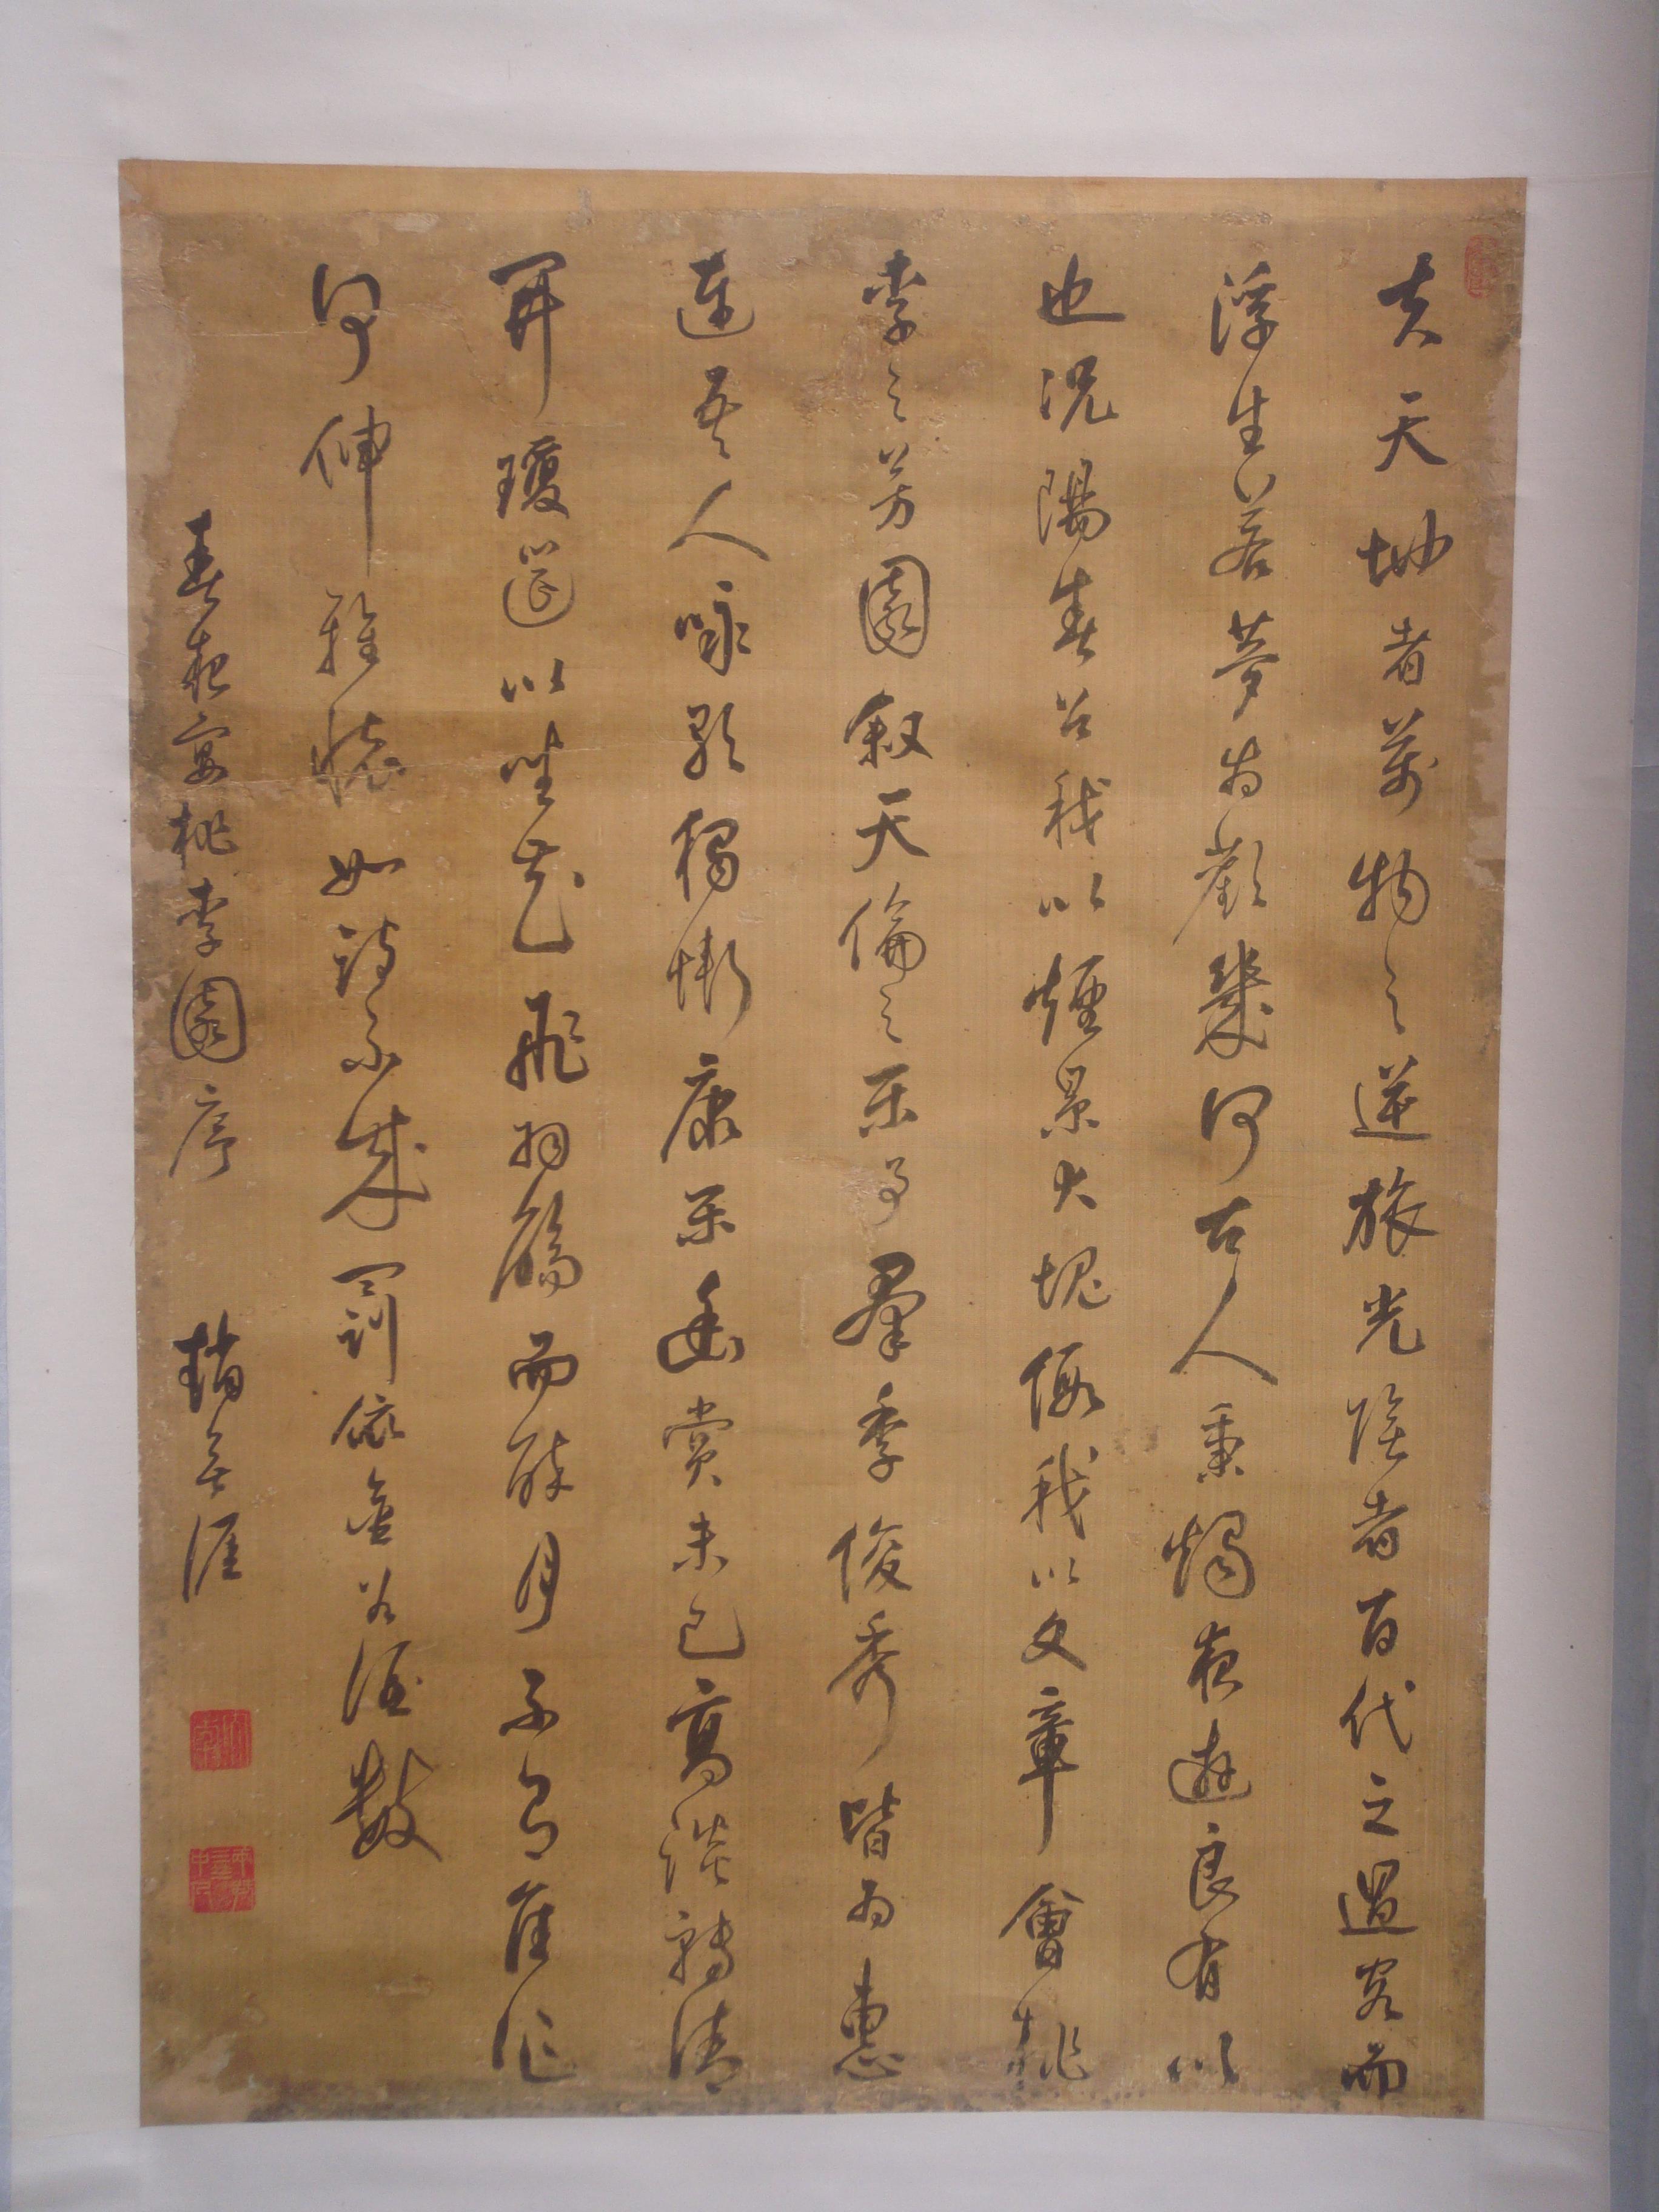 夫天地者萬物之逆旅光陰者百代之過客而
浮生若夢為歡幾何古人秉燭夜遊良有以
也況陽春召我以煙景大塊假我以文章會桃
李之芳園叙天倫之樂事羣季俊秀皆為惠
連吾人咏歌獨慚康樂幽賞未已高談轉清
開瓊筵以坐花飛羽觴而醉月不有佳作
何伸雅懷如詩不成罰依金谷酒數
春夜宴桃李園序